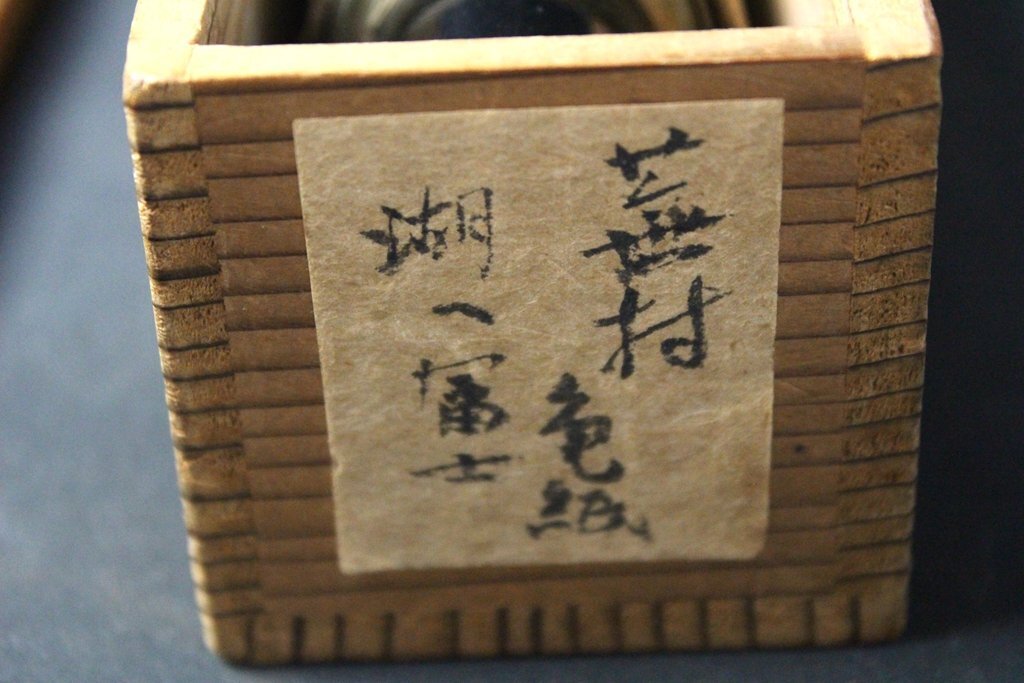 蕪村
色紙
湖へ富士